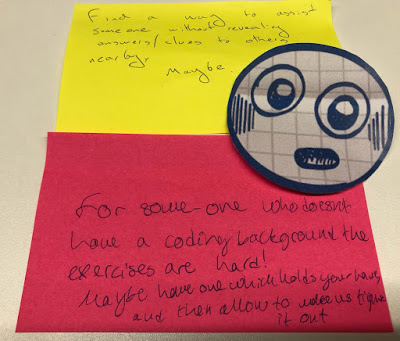 Find a way to assist
someone without revealing
answers/clues to others
nearby.
Maybe.
For some-one who doesn't
have a coding background the
exercises are hard!
Maybe have one which holds your hand,
and then allow to make us figure
it out